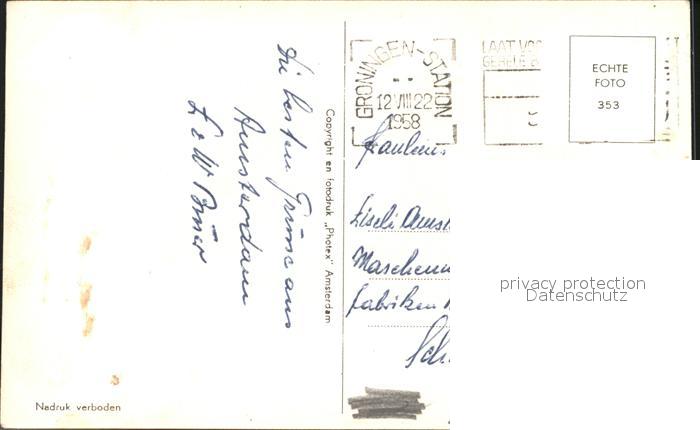 Die besten Grüsse aus
Amsterdam
L & W
Copyright en fotodruk „Photex" Amsterdam
GRONINGEN-STATION
12 VIII 22
1958
LAAT VOO
GEHELE
ECHTE
FOTO
353
Liseli
Fabriken
Sch
privacy protection
Datenschutz
Nadruk verboden